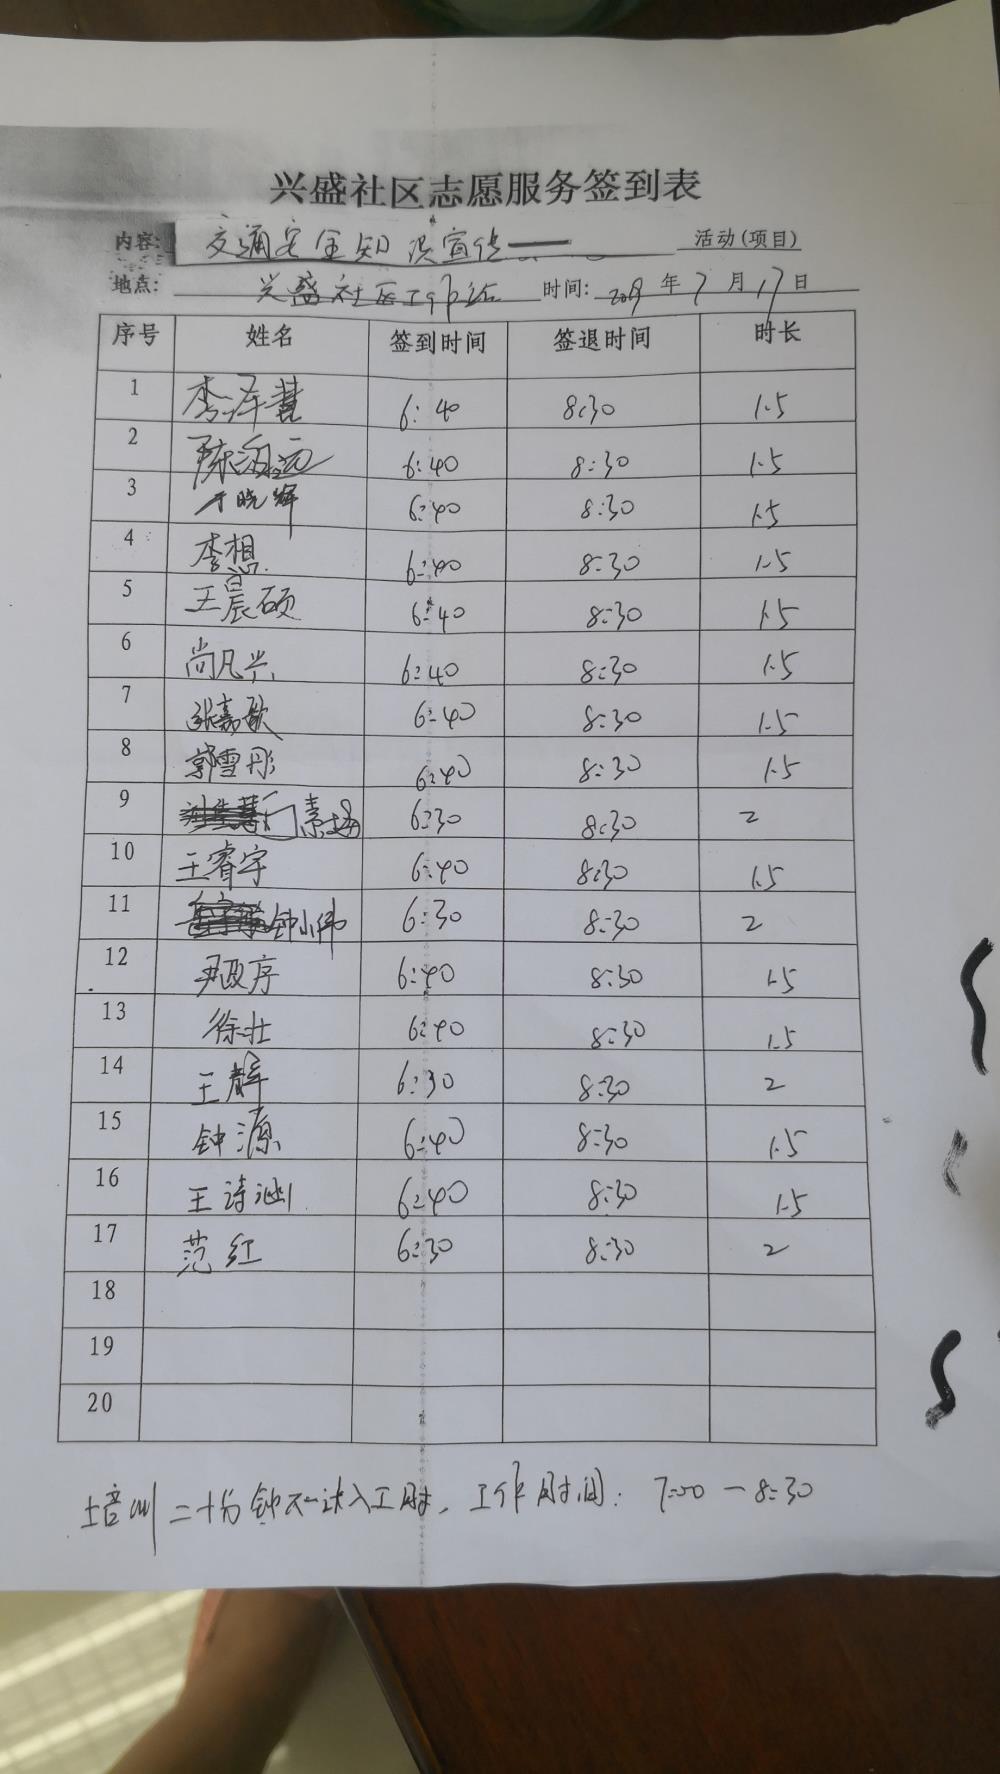 兴盛社区志愿服务签到表
内容: 交通安全知识宣传 活动(项目)
地点: 兴盛社区工作站 时间: 2019 年 7 月 17 日
序号 姓名 签到时间 签退时间 时长
1 李泽慧 6:40 8:30 1.5
2 陈泓远 6:40 8:30 1.5
3 于晓辉 6:40 8:30 1.5
4 李想 6:40 8:30 1.5
5 王晨硕 6:40 8:30 1.5
6 尚凡兴 6:40 8:30 1.5
7 张嘉敏 6:40 8:30 1.5
8 郭雪彤 6:40 8:30 1.5
9 素梅 6:30 8:30 2
10 王睿宇 6:40 8:30 1.5
11 钟小伟 6:30 8:30 2
12 尹政序 6:40 8:30 1.5
13 徐壮 6:40 8:30 1.5
14 王辉 6:30 8:30 2
15 钟源 6:40 8:30 1.5
16 王诗涵 6:40 8:30 1.5
17 范红 6:30 8:30 2
18
19
20
培训二十分钟不计入工时，工作时间：7:00－8:30